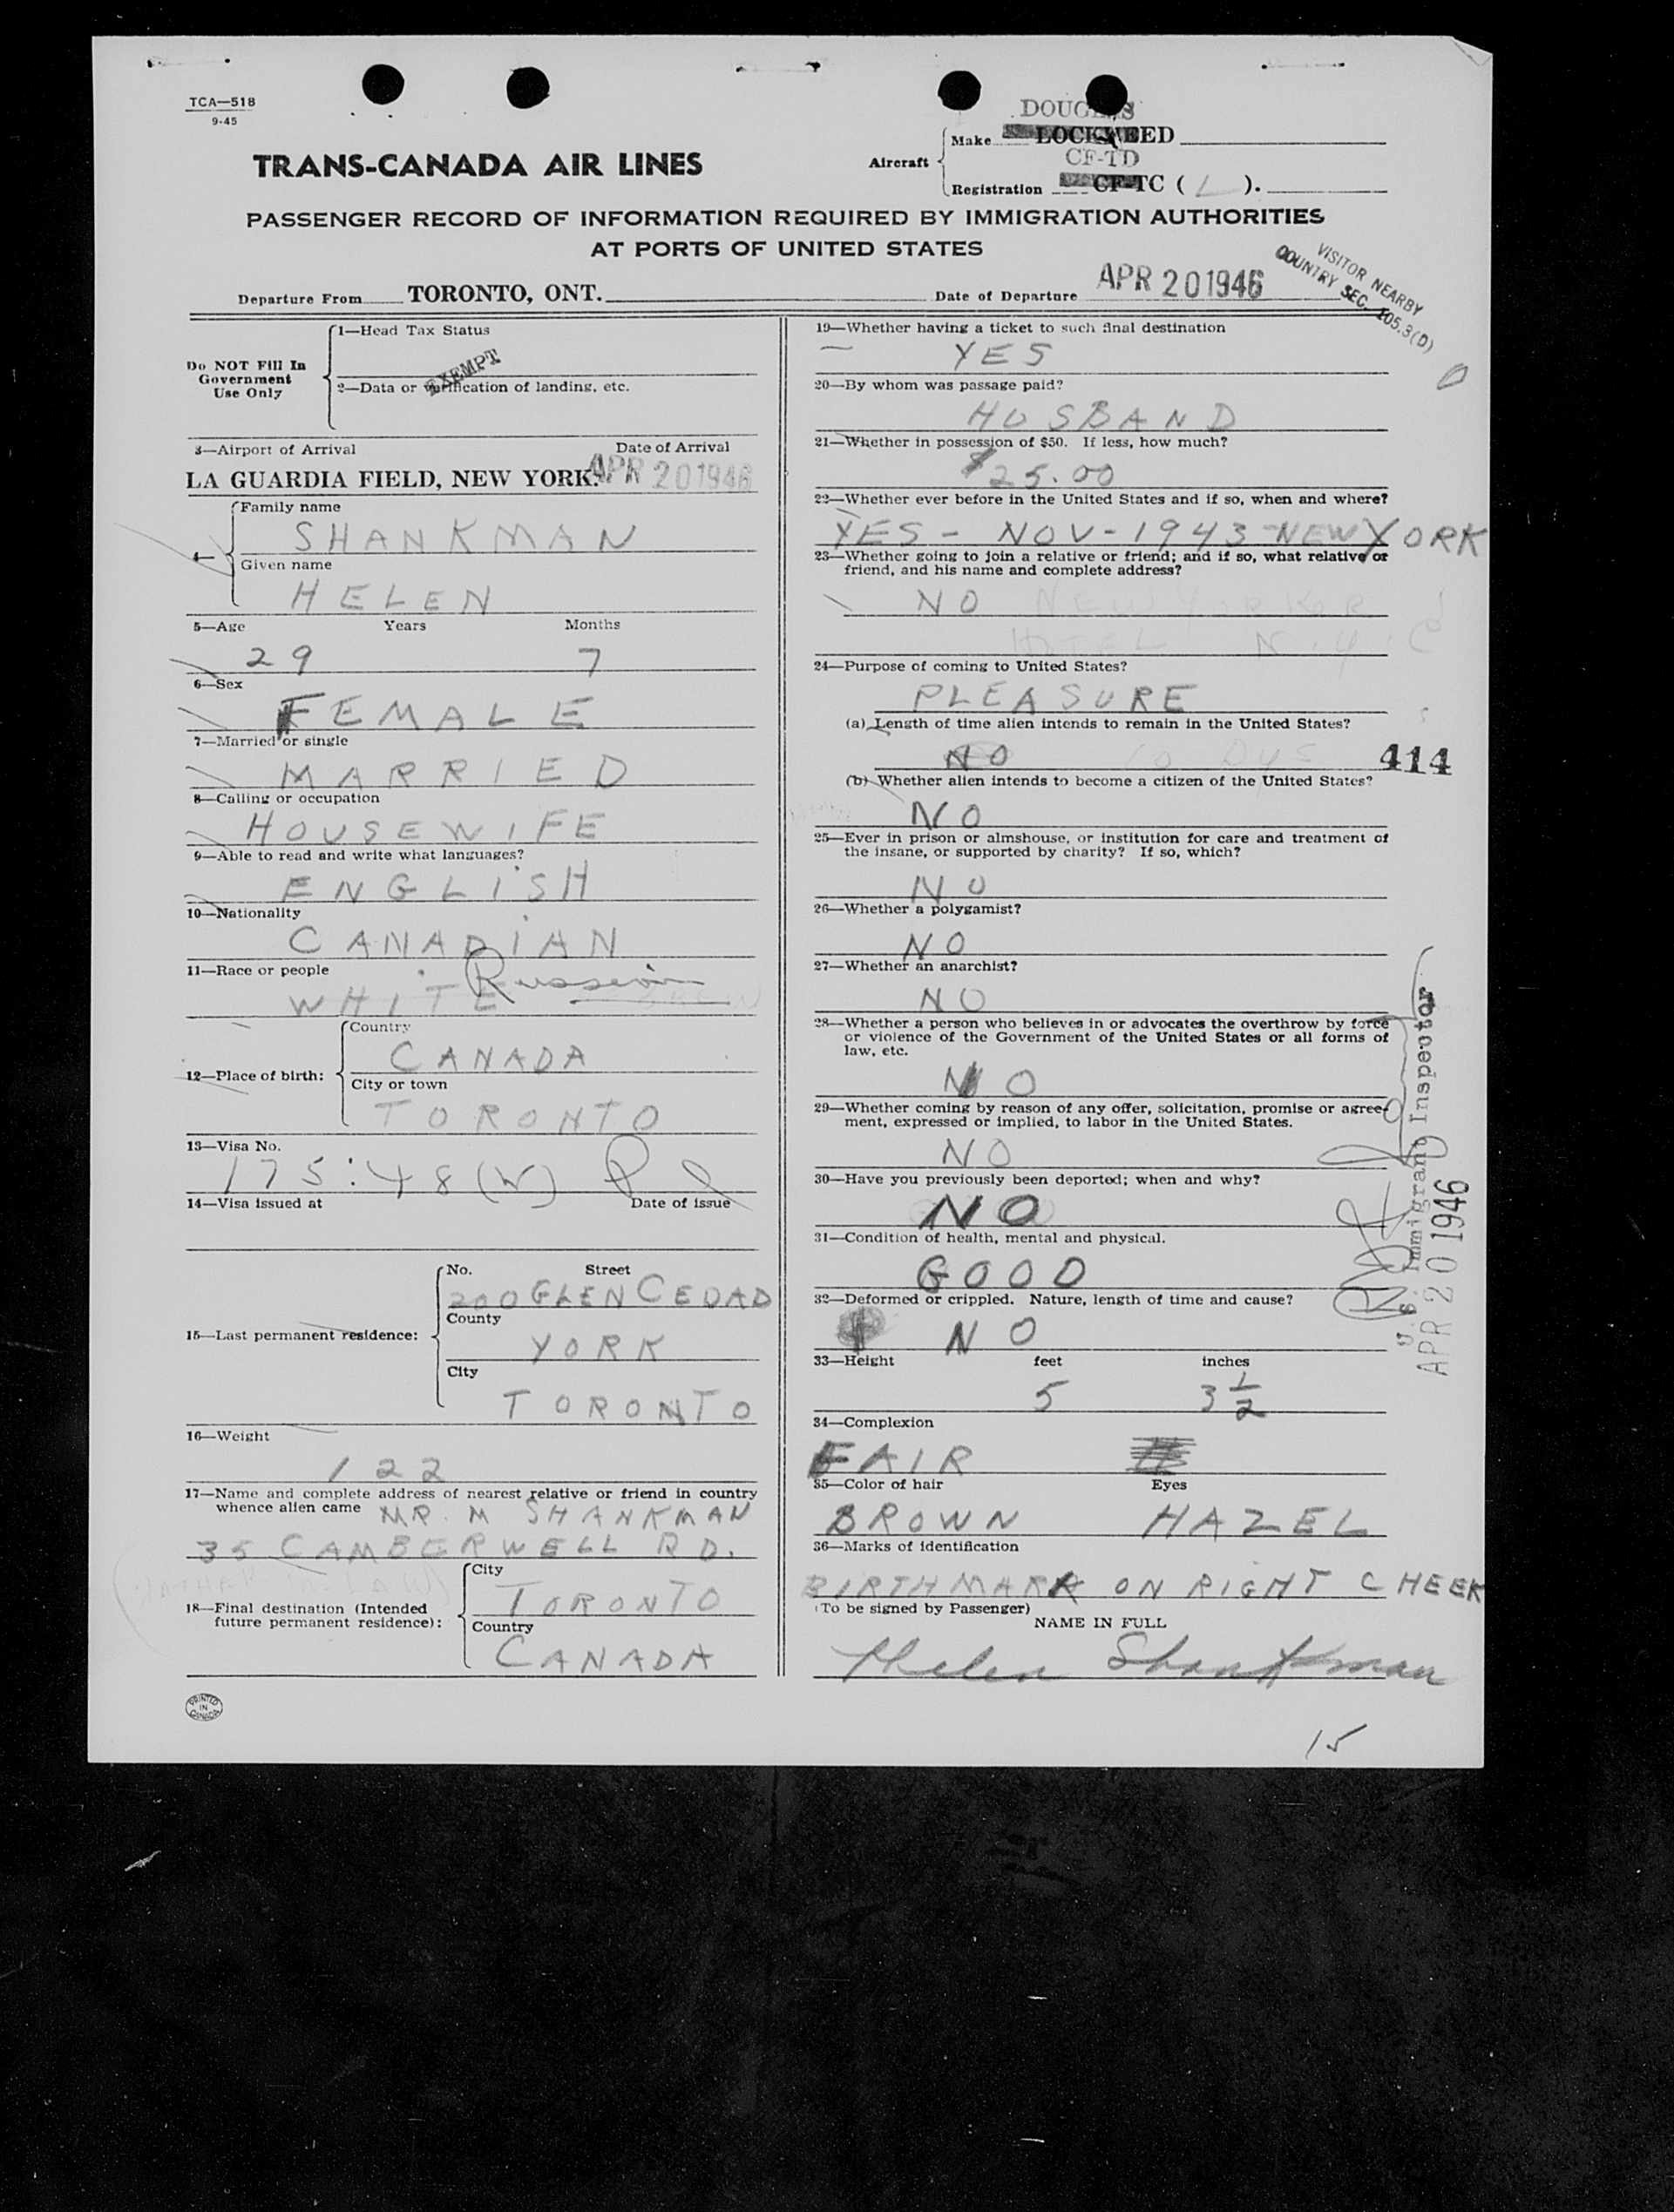 TCA—518
9-45
DOUGLAS
Make LOCKHEED
Aircraft
CF-TD
Registration CF-TC ( L ).
TRANS-CANADA AIR LINES
PASSENGER RECORD OF INFORMATION REQUIRED BY IMMIGRATION AUTHORITIES
AT PORTS OF UNITED STATES
VISITOR NEARBY
COUNTRY SEC. 105.3(D)
Departure From TORONTO, ONT. Date of Departure APR 20 1946
Do NOT Fill In
Government
Use Only
1—Head Tax Status
EXEMPT
2—Data or verification of landing, etc.
3—Airport of Arrival Date of Arrival
LA GUARDIA FIELD, NEW YORK. APR 20 1946
4—
Family name
SHANKMAN
Given name
HELEN
5—Age Years Months
29 7
6—Sex
FEMALE
7—Married or single
MARRIED
8—Calling or occupation
HOUSEWIFE
9—Able to read and write what languages?
ENGLISH
10—Nationality
CANADIAN
11—Race or people
WHITE Russian
12—Place of birth:
Country
CANADA
City or town
TORONTO
13—Visa No.
175:48(W)
14—Visa issued at Date of issue
15—Last permanent residence:
No. Street
200 GLEN CEDAD
County
YORK
City
TORONTO
16—Weight
122
17—Name and complete address of nearest relative or friend in country
whence alien came MR. M SHANKMAN
35 CAMBERWELL RD.
18—Final destination (Intended
future permanent residence):
City
TORONTO
Country
CANADA
PRINTED
IN
CANADA
19—Whether having a ticket to such final destination
YES
20—By whom was passage paid?
HUSBAND
21—Whether in possession of $50. If less, how much?
$25.00
22—Whether ever before in the United States and if so, when and where?
YES - NOV - 1943 - NEW YORK
23—Whether going to join a relative or friend; and if so, what relative or
friend, and his name and complete address?
NO NEW YORKER
HOTEL N.Y.C
24—Purpose of coming to United States?
PLEASURE
(a) Length of time alien intends to remain in the United States?
NO 10 DYS 414
(b) Whether alien intends to become a citizen of the United States?
NO
25—Ever in prison or almshouse, or institution for care and treatment of
the insane, or supported by charity? If so, which?
NO
26—Whether a polygamist?
NO
27—Whether an anarchist?
NO
28—Whether a person who believes in or advocates the overthrow by force
or violence of the Government of the United States or all forms of
law, etc.
NO
29—Whether coming by reason of any offer, solicitation, promise or agree-
ment, expressed or implied, to labor in the United States.
NO
30—Have you previously been deported; when and why?
NO
31—Condition of health, mental and physical.
GOOD
32—Deformed or crippled. Nature, length of time and cause?
NO
33—Height feet inches
5 3 1/2
34—Complexion
FAIR
35—Color of hair Eyes
BROWN HAZEL
36—Marks of identification
BIRTHMARK ON RIGHT CHEEK
(To be signed by Passenger)
NAME IN FULL
Helen Shankman
U.S. Immigrant Inspector
APR 20 1946
15